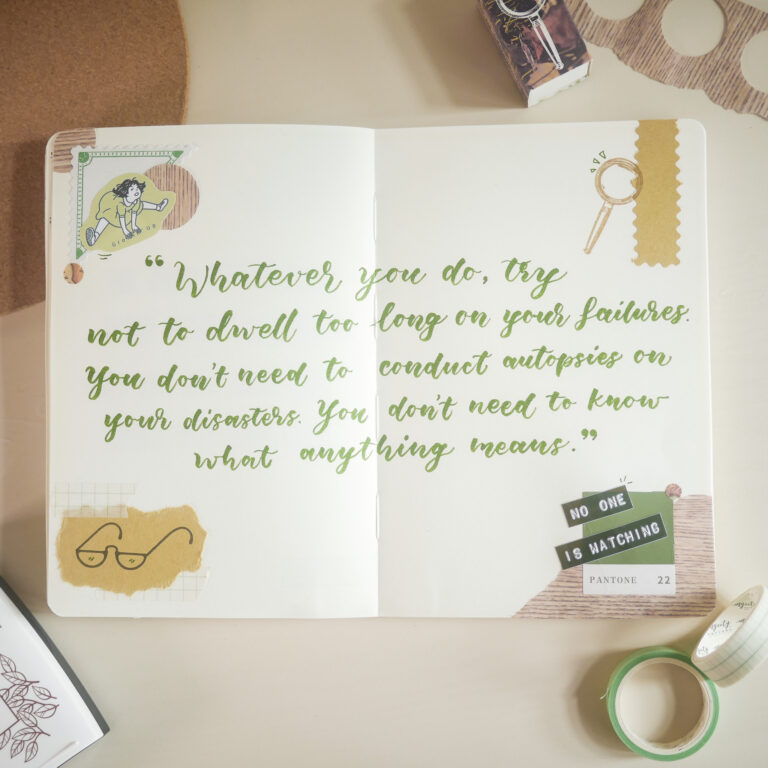 Growing up
"Whatever you do, try
not to dwell too long on your failures.
You don't need to conduct autopsies on
your disasters. You don't need to know
what anything means."
NO ONE
IS WATCHING
PANTONE 22